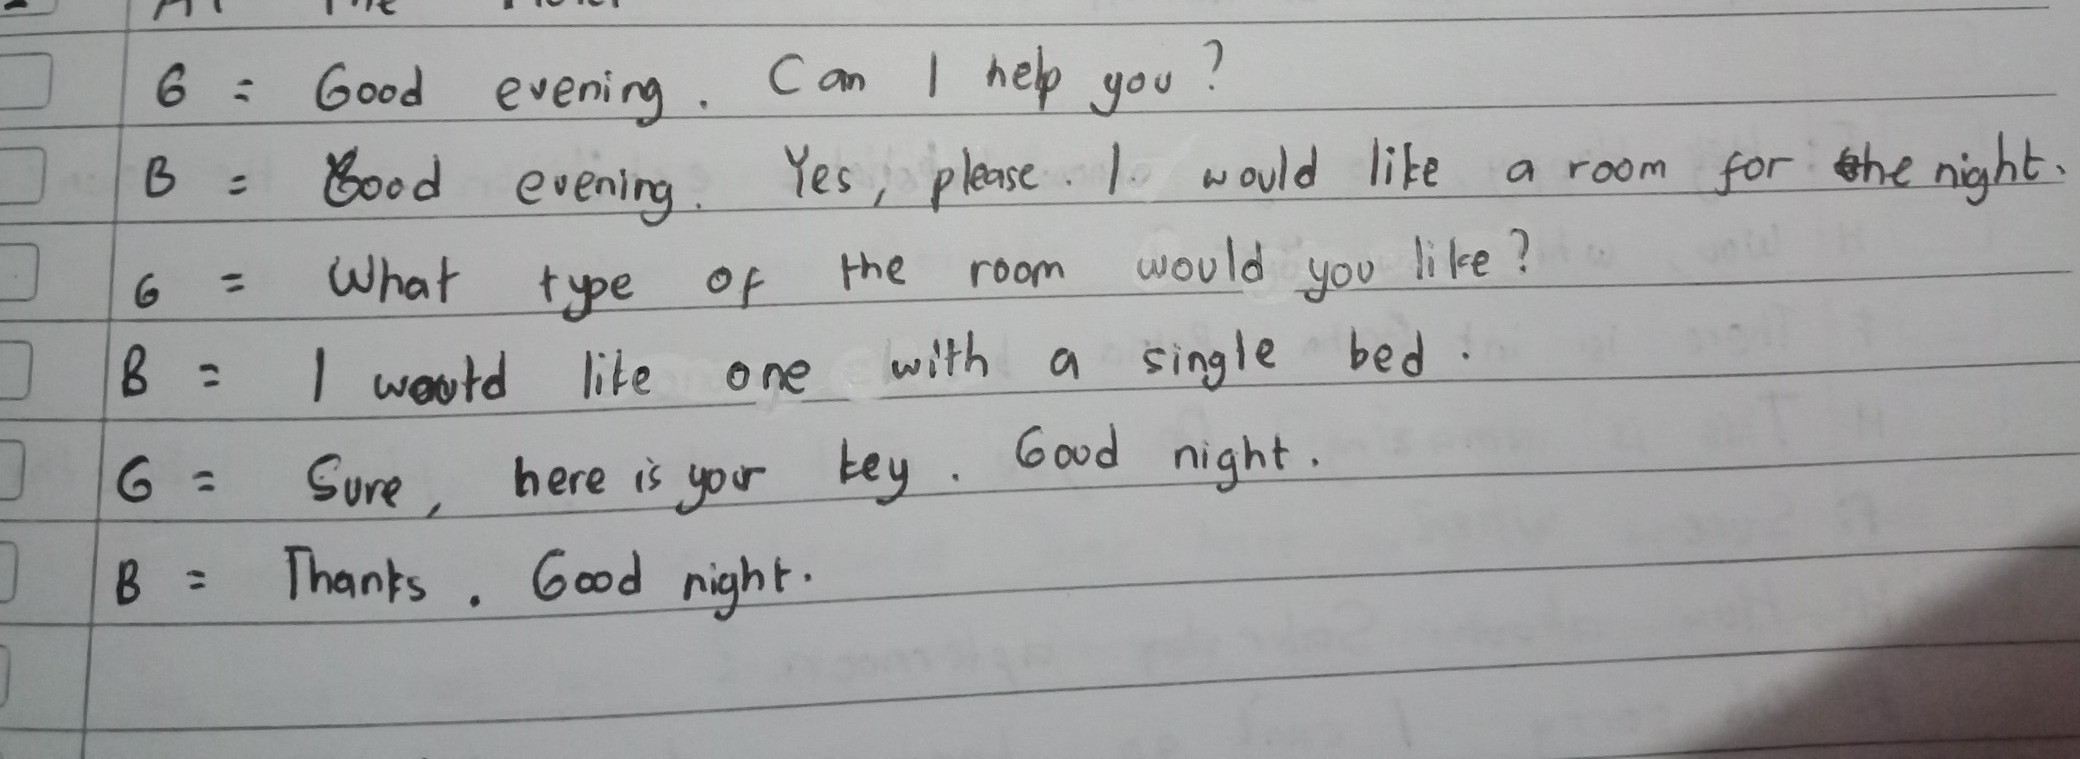 At The Hotel
G = Good evening. Can I help you?
B = Good evening. Yes, please. I would like a room for the night.
G = What type of the room would you like?
B = I would like one with a single bed.
G = Sure, here is your key. Good night.
B = Thanks. Good night.